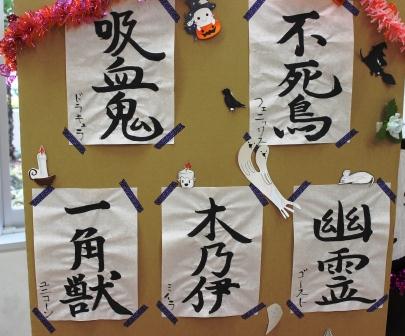 吸血鬼
ドラキュラ
不死鳥
フェニックス
一角獣
ユニコーン
木乃伊
ミイラ
幽霊
ゴースト